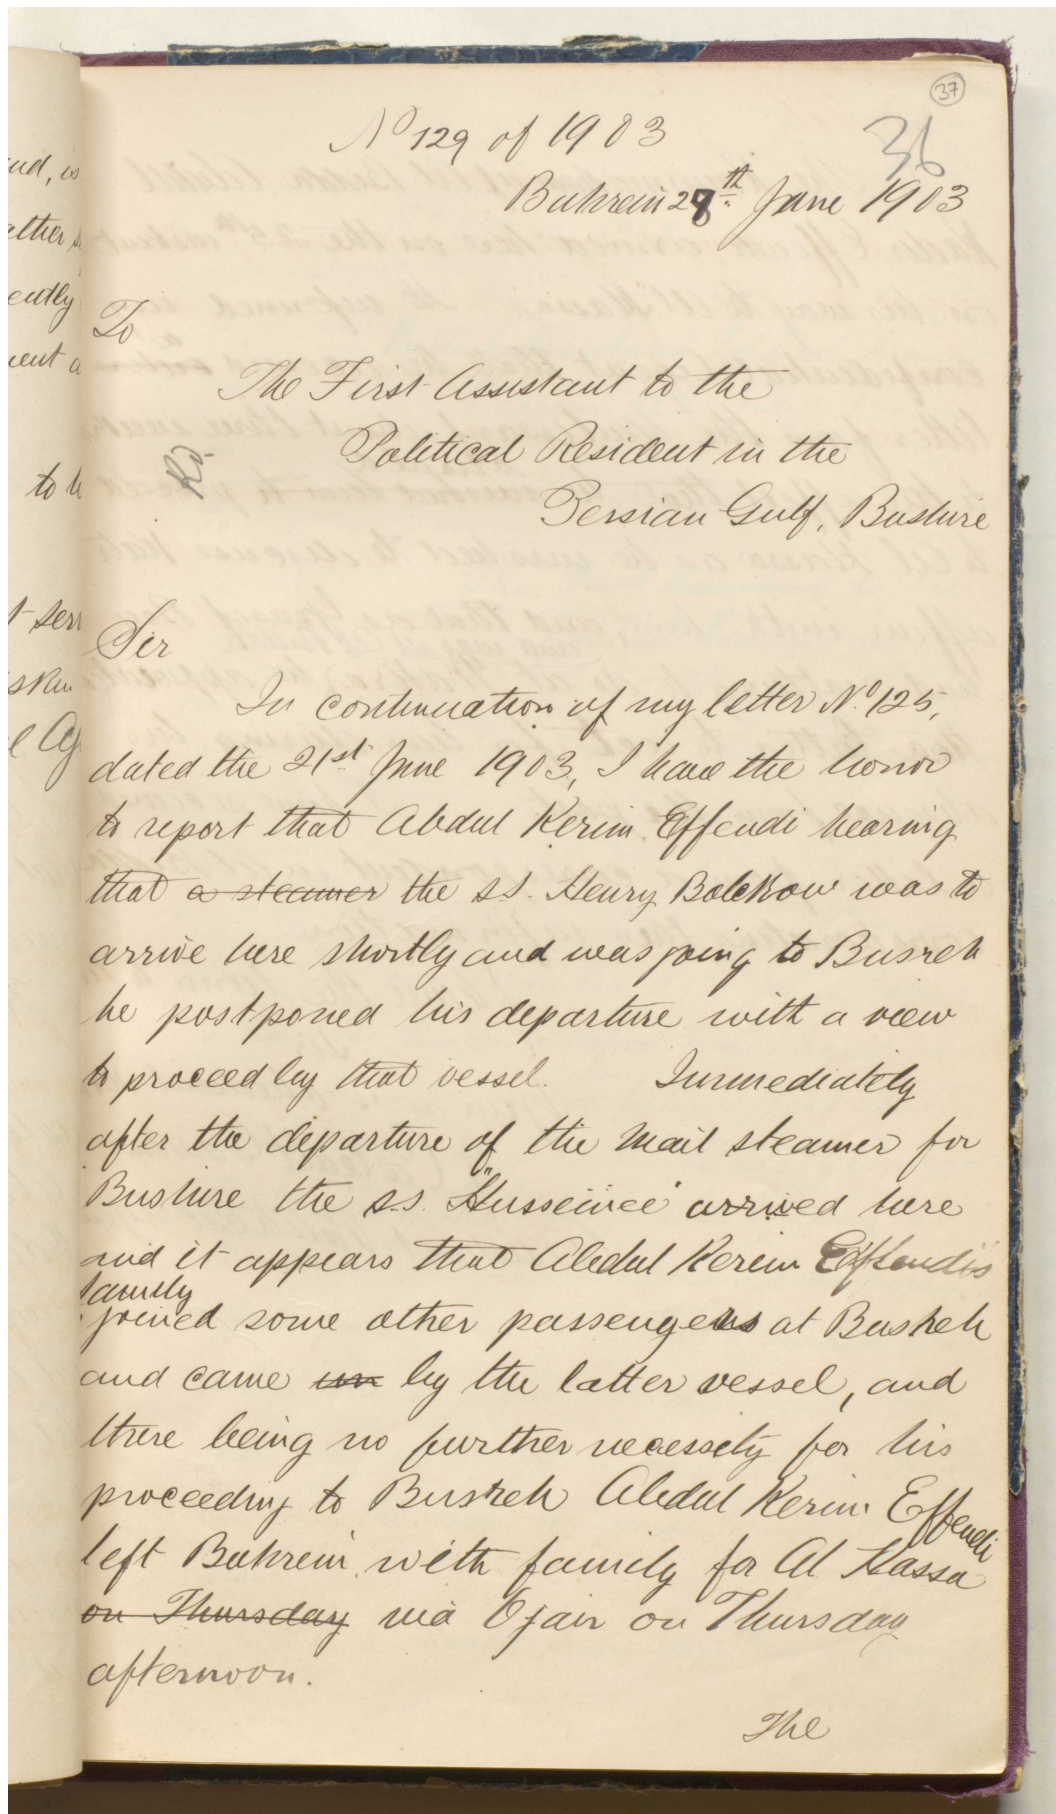 37
36
No 129 of 1903
Bahrein 28th June 1903
To
The First Assistant to the
Political Resident in the
Persian Gulf, Bushire
Sir
In continuation of my letter No. 125,
dated the 21st June 1903, I have the honor
to report that Abdul Kerim Effendi hearing
that a steamer the S.S. Henry Bolckow was to
arrive here shortly and was going to Busreh
he postponed his departure with a view
to proceed by that vessel. Immediately
after the departure of the mail steamer for
Bushire the S.S. "Husseinee" arrived here
and it appears that Abdul Kerim Effendi's
family
joined some other passengers at Busreh
and came by the latter vessel, and
there being no further necessity for his
proceeding to Busreh Abdul Kerim Effendi
left Bahrein with family for Al Hassa
on Thursday via Ojair on Thursday
afternoon.
The